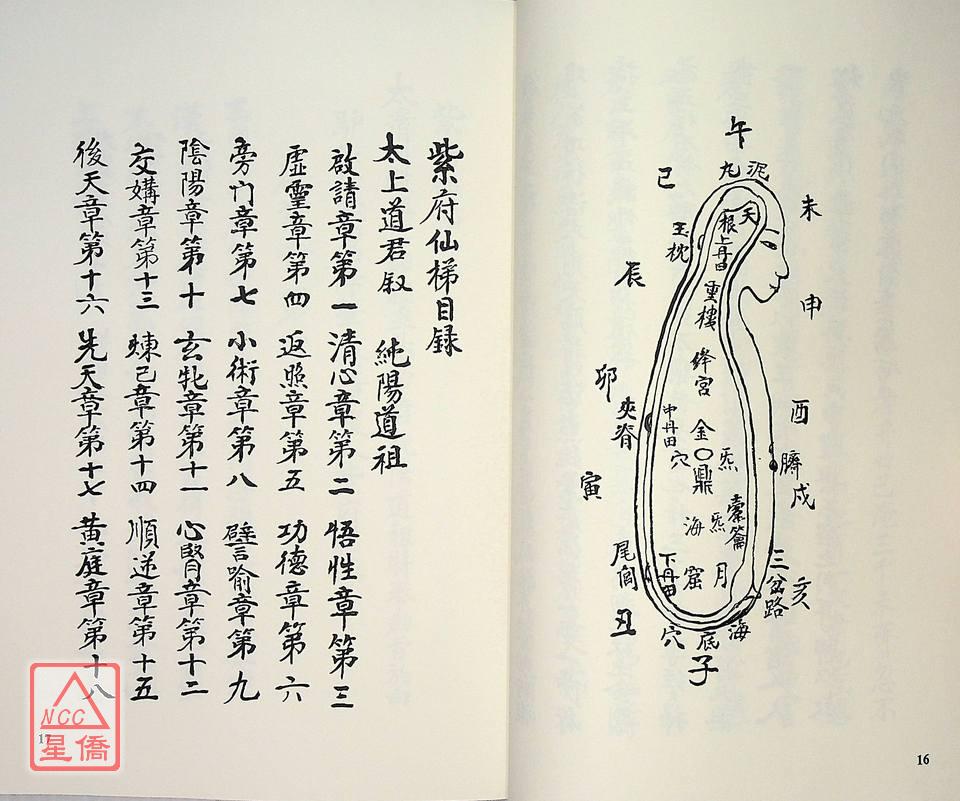 午
泥
九
未
巳
天
根
上丹田
玉枕
重樓
辰
申
絳宮
卯
夾脊
中丹田
金〇鼎
穴
炁
酉
臍
戌
寅
橐籥
炁
海
尾閭
下丹田
窟
月
三岔路
亥
丑
穴
底
海
子
16
紫府仙梯目録
太上道君叙 純陽道祖
啟請章第一 清心章第二 悟性章第三
虛靈章第四 返照章第五 功德章第六
旁门章第七 小術章第八 譬喻章第九
陰陽章第十 玄牝章第十一 心腎章第十二
交媾章第十三 煉己章第十四 順逆章第十五
後天章第十六 先天章第十七 黄庭章第十八
17
NCC
星僑